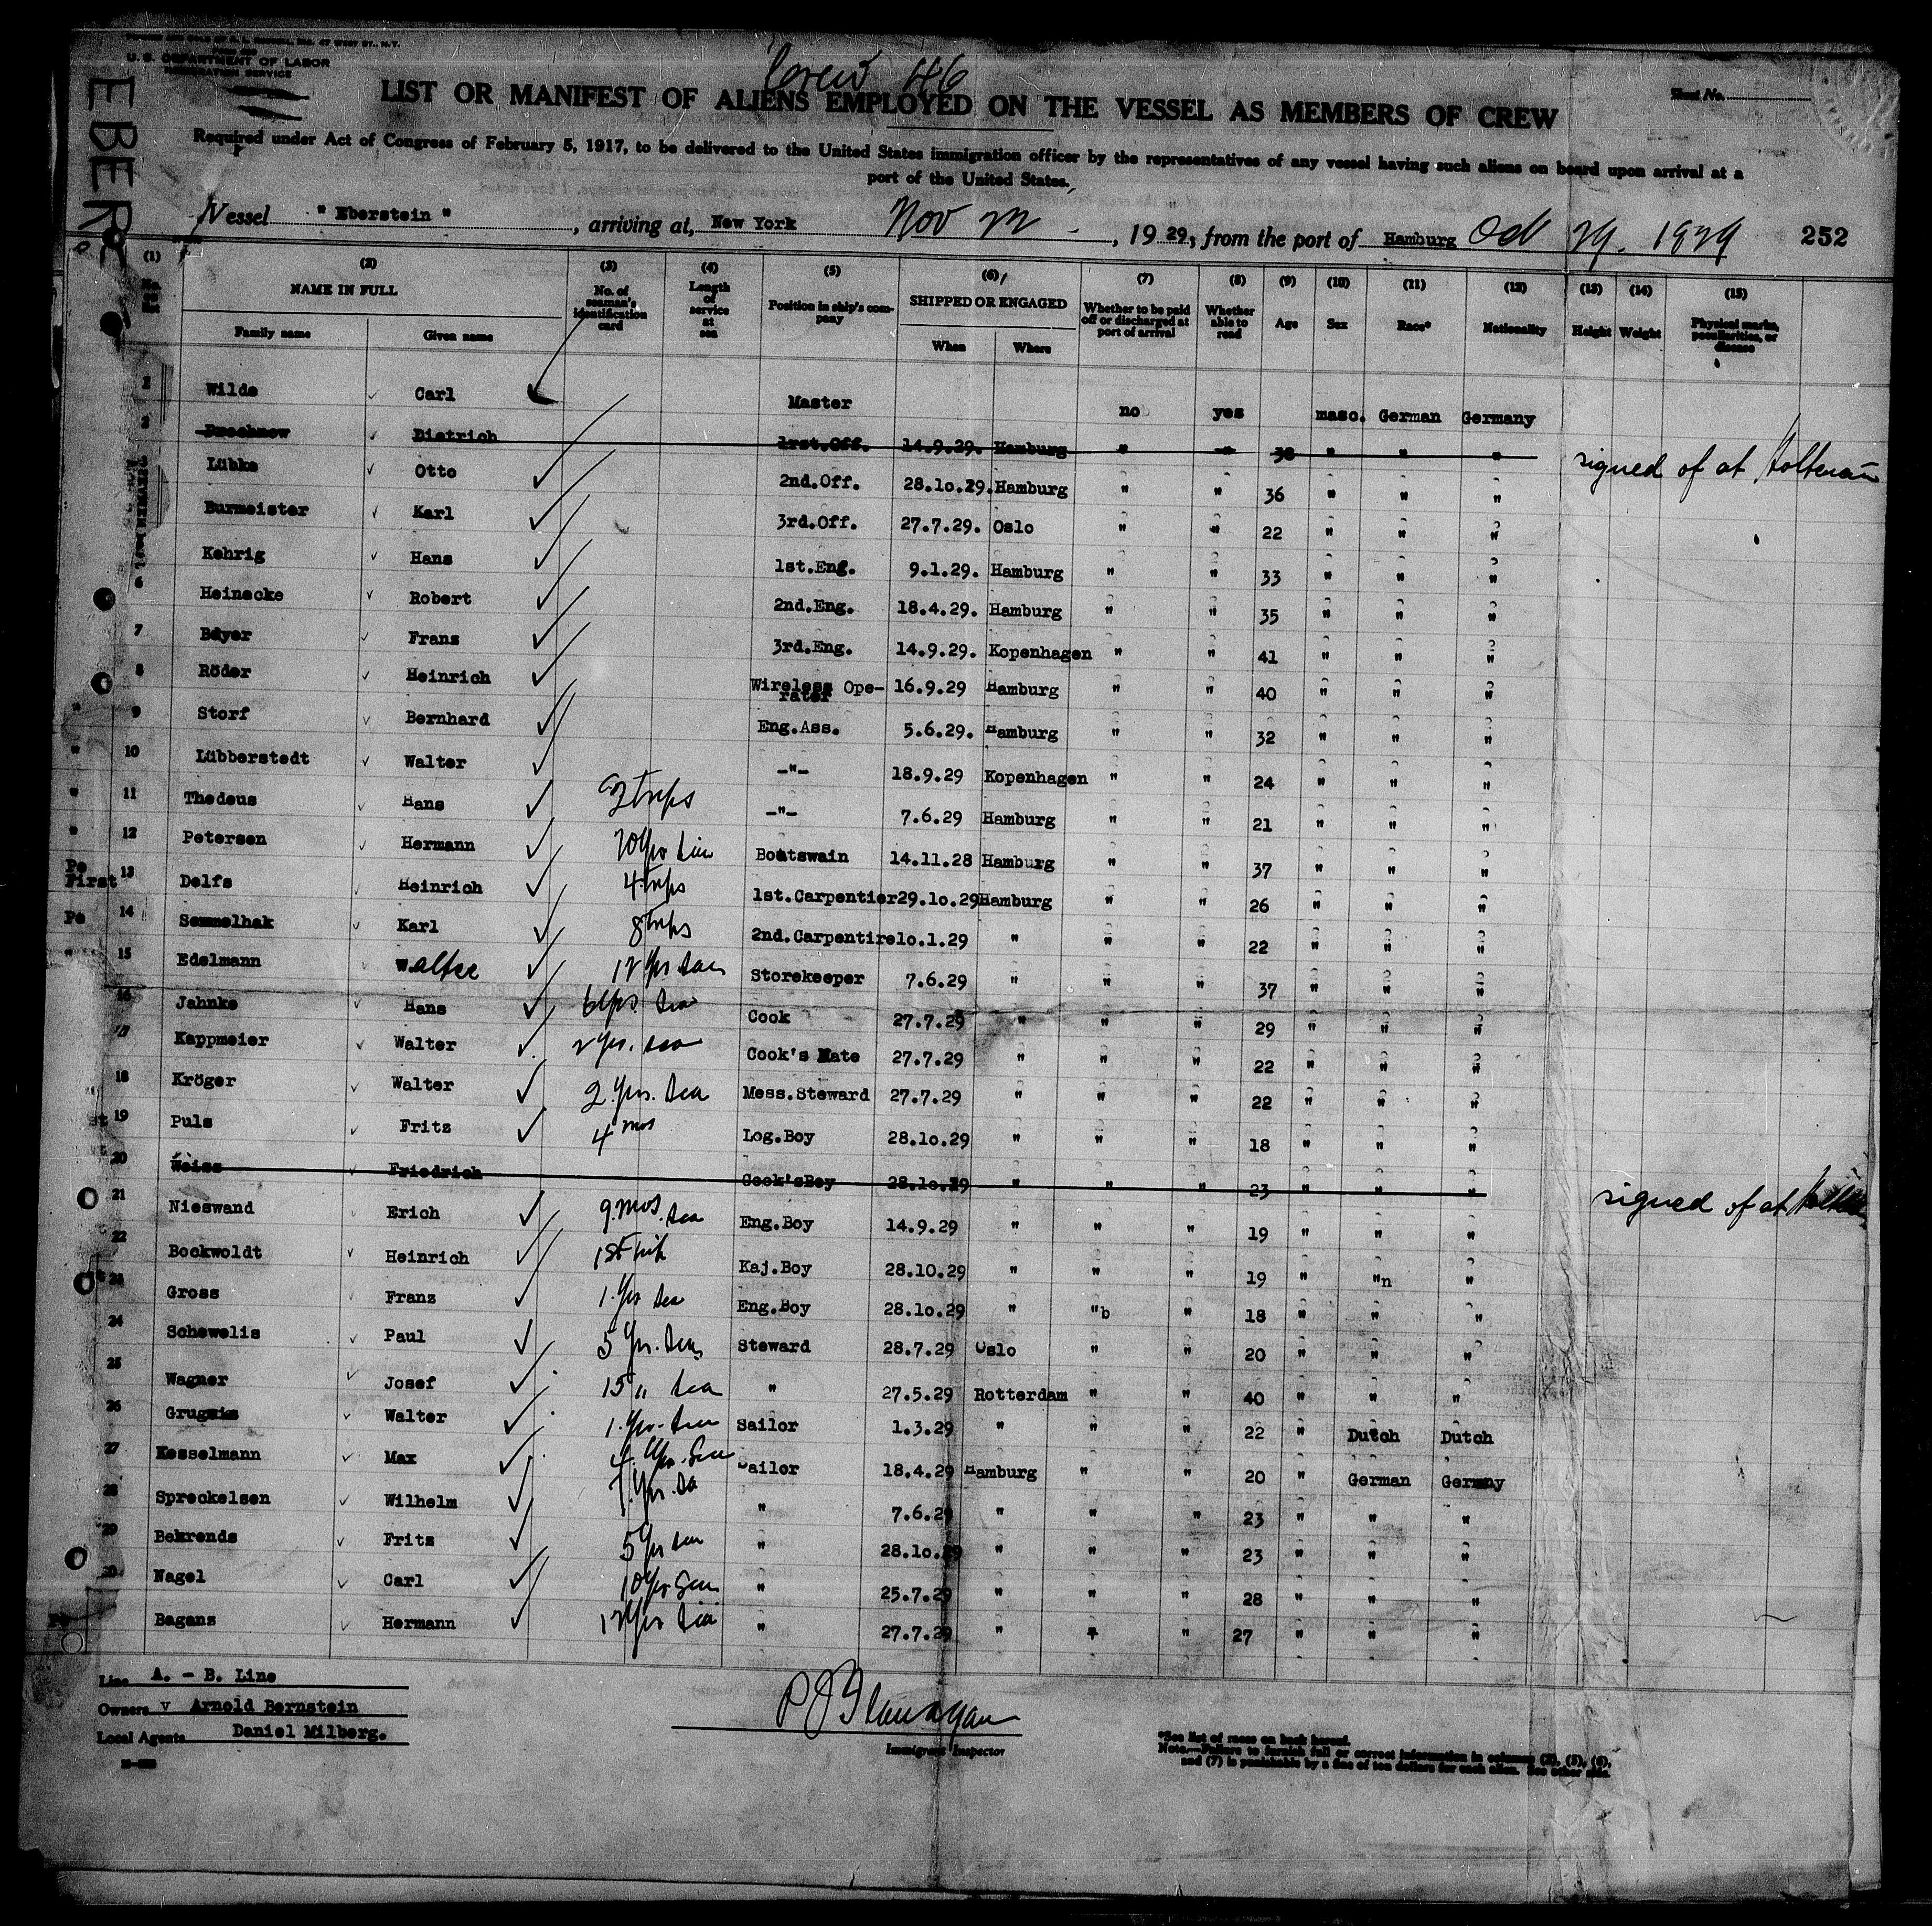 U. S. DEPARTMENT OF LABOR
IMMIGRATION SERVICE
EBER
Crew 46
Sheet No.
LIST OR MANIFEST OF ALIENS EMPLOYED ON THE VESSEL AS MEMBERS OF CREW
Required under Act of Congress of February 5, 1917, to be delivered to the United States immigration officer by the representatives of any vessel having such aliens on board upon arrival at a
port of the United States.
Vessel " Eberstein " , arriving at, New York Nov , 19 29, from the port of Hamburg Oct 29. 1929 252
(1) (2) (3) (4) (5) (6) (7) (8) (9) (10) (11) (12) (13) (14) (15)
NAME IN FULL Family name Given name No. of seaman's identification card Length of service at sea Position in ship's company SHIPPED OR ENGAGED When Where Whether to be paid off or discharged at port of arrival Whether able to read Age Sex Race* Nationality Height Weight Physical marks, peculiarities, or disease
1 Wilde Carl Master no yes masc. German Germany
2 Dietrich 1rst.Off. 14.9.29. Hamburg " " 38 " " " signed of at
Lübke Otto 2nd.Off. 28.10.29. Hamburg " " 36 " " "
Burmeister Karl 3rd.Off. 27.7.29. Oslo " " 22 " " "
Kehrig Hans 1st.Eng. 9.1.29. Hamburg " " 33 " " "
6 Heinecke Robert 2nd.Eng. 18.4.29. Hamburg " " 35 " " "
7 Beyer Franz 3rd.Eng. 14.9.29. Kopenhagen " " 41 " " "
8 Röder Heinrich Wireless Ope-rater 16.9.29 Hamburg " " 40 " " "
" 9 Storf Bernhard Eng.Ass. 5.6.29. Hamburg " " 32 " " "
" 10 Lübberstedt Walter -"- 18.9.29 Kopenhagen " " 24 " " "
" 11 Thedeus Hans trips -"- 7.6.29 Hamburg " " 21 " " "
" 12 Petersen Hermann 20 Yrs sea Boatswain 14.11.28 Hamburg " " 37 " " "
Pe First 13 Delfs Heinrich 4 trips 1st.Carpentier 29.10.29 Hamburg " " 26 " " "
Pe 14 Semmelhak Karl 8 trips 2nd.Carpentire 10.1.29 " " " 22 " " "
" 15 Edelmann Walter 12 Yrs sea Storekeeper 7.6.29 " " " 37 " " "
16 Jahnke Hans 6 Yrs. sea Cook 27.7.29 " " " 29 " " "
17 Kappmeier Walter 2 Yrs. sea Cook's Mate 27.7.29 " " " 22 " " "
18 Kröger Walter 2 Yrs. sea Mess.Steward 27.7.29 " " " 22 " " "
st 19 Puls Fritz 4 mos Log.Boy 28.10.29 " " " 18 " " "
20 Weiss Friedrich Cook'sBoy 28.10.29 " " " 23 " " " signed of at
21 Nieswand Erich 9. mos. sea Eng.Boy 14.9.29 " " " 19 " " "
22 Bockwoldt Heinrich 1st trip Kaj.Boy 28.10.29 " " " 19 " "n "
23 Gross Franz 1. Yr sea Eng.Boy 28.10.29 " "b " 18 " " "
24 Schewelis Paul 5 Yrs. sea Steward 28.7.29 Oslo " " 20 " " "
25 Wagner Josef 15 " sea " 27.5.29 Rotterdam " " 40 " " "
26 Walter 1. Yr. sea Sailor 1.3.29 " " " 22 " Dutch Dutch
27 Kesselmann Max 4. Yrs. Sea Sailor 18.4.29 Hamburg " " 20 " German Germny
28 Spreckelsen Wilhelm 7 Yrs. sea " 7.6.29 " " " 23 " " "
29 Bekrends Fritz 5 Yrs sea " 28.10.29 " " " 23 " " "
30 Nagel Carl 10 Yrs Sea " 25.7.29 " " " 28 " " "
Pe Bagans Hermann 12 Yrs sea " 27.7.29 " " " 27 " " "
Line A. - B. Line
Owners v Arnold Bernstein
Local Agents Daniel Milberg.
P J Flanagan
Immigrant Inspector
*See list of races on back hereof.
Note.—Failure to furnish full or correct information in columns (2), (5), (6),
and (7) is punishable by a fine of ten dollars for each alien. See other side.